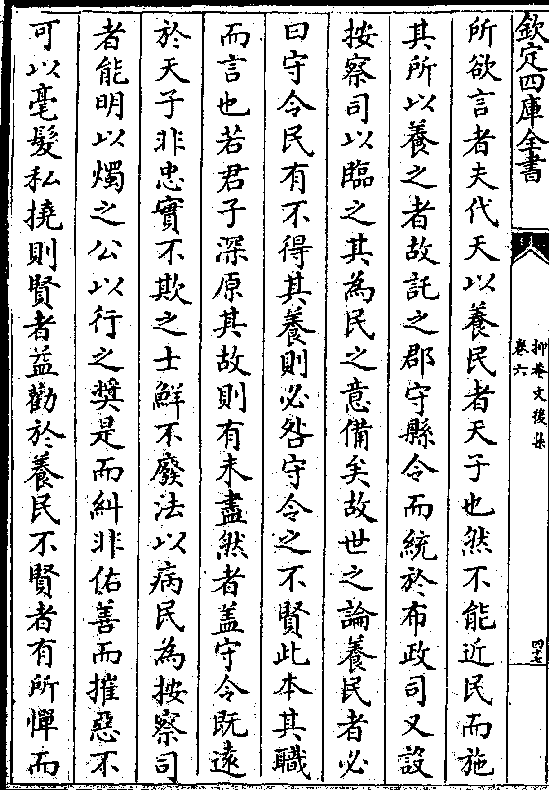 欽定四庫全書
抑菴文後集
卷六
四十七
所欲言者夫代天以養民者天子也然不能近民而施
其所以養之者故託之郡守縣令而統於布政司又設
按察司以臨之其為民之意備矣故世之論養民者必
曰守令民有不得其養則必咎守令之不賢此本其職
而言也若君子深原其故則有未盡然者盖守令既遠
於天子非忠實不欺之士鮮不廢法以病民為按察司
者能明以燭之公以行之奨是而糾非佑善而摧惡不
可以毫髮私撓則賢者益勸於養民不賢者有所憚而